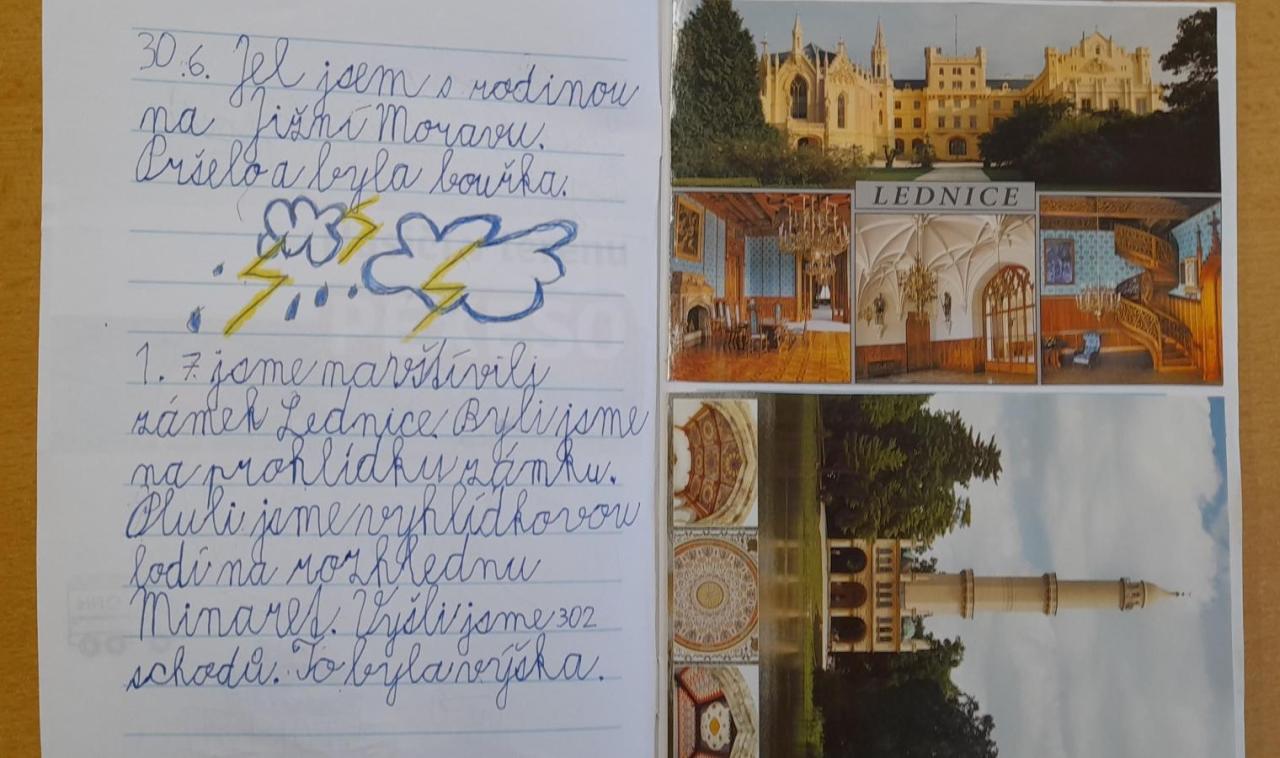 30.6. Jel jsem s rodinou
na Jižní Moravu.
Pršelo a byla bouřka.
1. 7 jsme navštívili
zámek Lednice. Byli jsme
na prohlídku zámku.
Pluli jsme vyhlídkovou
lodí na rozhlednu
Minaret. Vyšli jsme 302
schodů. To byla výška.
LEDNICE